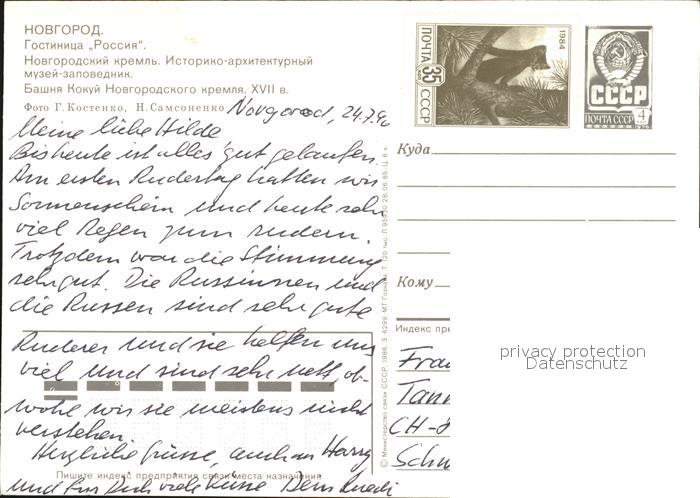 НОВГОРОД.
Гостиница „Россия“.
Новгородский кремль. Историко-архитектурный
музей-заповедник.
Башня Кокуй Новгородского кремля. XVII в.
Фото Г. Костенко, Н. Самсоненко
ПОЧТА
35
СССР
1984
СССР
ПОЧТА СССР
4
Novgorod, 24.7.90
Meine liebe Hilde
Bis heute ist alles gut gelaufen.
Am ersten Rudertag hatten wir
Sonnenschein und heute sehr
viel Regen zum rudern.
Trotzdem war die Stimmung
sehr gut. Die Russinnen und
die Russen sind sehr gute
Ruderer und sie helfen uns
viel und sind sehr nett, ob-
wohl wir sie meistens nicht
verstehen.
Herzliche Grüsse, auch an Harry
und für Dich viele Küsse Dein
Пишите индекс предприятия связи места назначения
© Министерство связи СССР, 1986. З. 6299. МТ Гознака. Т. 120 тыс.
Куда
Кому
Индекс пре
Frau
Tann
CH-8
Schw
privacy protection
Datenschutz